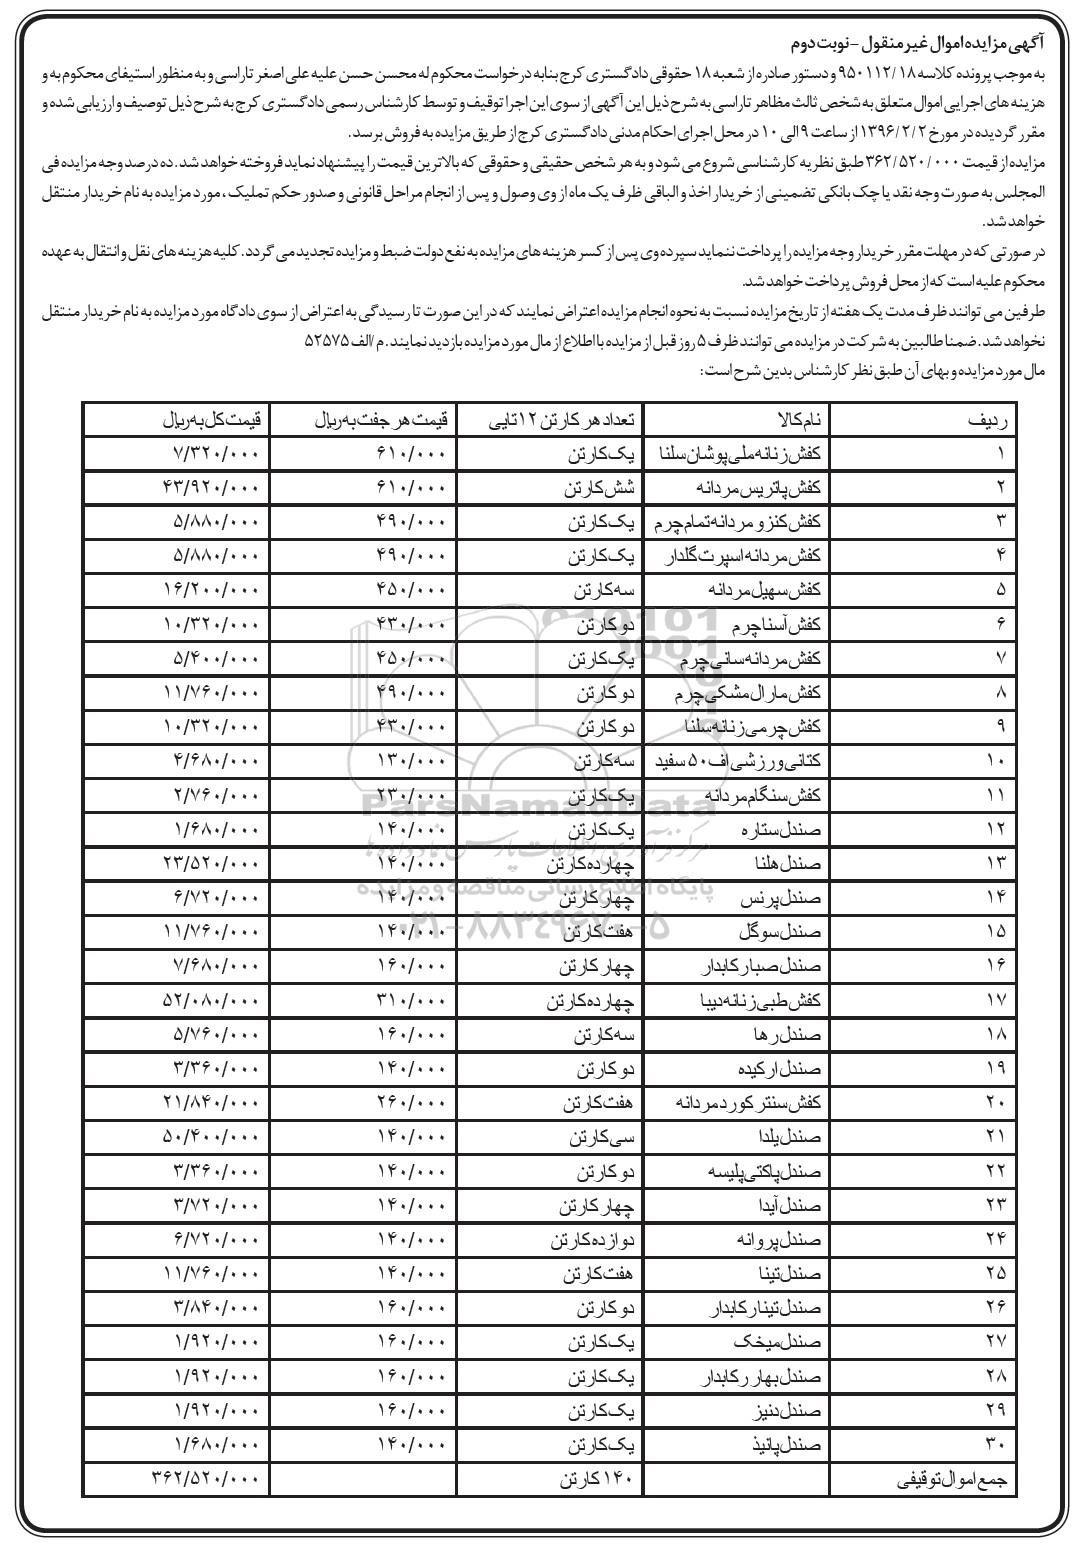 آگهی مزایده اموال غیر منقول - نوبت دوم
به موجب پرونده کلاسه ۹۵۰۱۱۲/۱۸ و دستور صادره از شعبه ۱۸ حقوقی دادگستری کرج بنا به درخواست محکوم له محسن حسن علیه علی اصغر تاراسی و به منظور استیفای محکوم به و
هزینه های اجرایی اموال متعلق به شخص ثالث مظاهر تاراسی به شرح ذیل این آگهی از سوی این اجرا توقیف و توسط کارشناس رسمی دادگستری کرج به شرح ذیل توصیف و ارزیابی شده و
مقرر گردیده در مورخ ۱۳۹۶/۲/۲ از ساعت ۹ الی ۱۰ در محل اجرای احکام مدنی دادگستری کرج از طریق مزایده به فروش برسد.
مزایده از قیمت ۳۶۲/۵۲۰/۰۰۰ طبق نظریه کارشناسی شروع می شود و به هر شخص حقیقی و حقوقی که بالاترین قیمت را پیشنهاد نماید فروخته خواهد شد. ده درصد وجه مزایده فی
المجلس به صورت وجه نقد یا چک بانکی تضمینی از خریدار اخذ و الباقی ظرف یک ماه از وی وصول و پس از انجام مراحل قانونی و صدور حکم تملیک ، مورد مزایده به نام خریدار منتقل
خواهد شد.
در صورتی که در مهلت مقرر خریدار وجه مزایده را پرداخت ننماید سپرده وی پس از کسر هزینه های مزایده به نفع دولت ضبط و مزایده تجدید می گردد. کلیه هزینه های نقل و انتقال به عهده
محکوم علیه است که از محل فروش پرداخت خواهد شد.
طرفین می توانند ظرف مدت یک هفته از تاریخ مزایده نسبت به نحوه انجام مزایده اعتراض نمایند که در این صورت تا رسیدگی به اعتراض از سوی دادگاه مورد مزایده به نام خریدار منتقل
نخواهد شد. ضمنا طالبین به شرکت در مزایده می توانند ظرف ۵ روز قبل از مزایده با اطلاع از مال مورد مزایده بازدید نمایند. م/الف ۵۲۵۷۵
مال مورد مزایده و بهای آن طبق نظر کارشناس بدین شرح است:
ردیف نام کالا تعداد هر کارتن ۱۲ تایی قیمت هر جفت به ریال قیمت کل به ریال
۱ کفش زنانه ملی پوشان سلنا یک کارتن ۶۱۰/۰۰۰ ۷/۳۲۰/۰۰۰
۲ کفش پاتریس مردانه شش کارتن ۶۱۰/۰۰۰ ۴۳/۹۲۰/۰۰۰
۳ کفش کنزو مردانه تمام چرم یک کارتن ۴۹۰/۰۰۰ ۵/۸۸۰/۰۰۰
۴ کفش مردانه اسپرت گلدار یک کارتن ۴۹۰/۰۰۰ ۵/۸۸۰/۰۰۰
۵ کفش سهیل مردانه سه کارتن ۴۵۰/۰۰۰ ۱۶/۲۰۰/۰۰۰
۶ کفش آسنا چرم دو کارتن ۴۳۰/۰۰۰ ۱۰/۳۲۰/۰۰۰
۷ کفش مردانه سانی چرم یک کارتن ۴۵۰/۰۰۰ ۵/۴۰۰/۰۰۰
۸ کفش مارال مشکی چرم دو کارتن ۴۹۰/۰۰۰ ۱۱/۷۶۰/۰۰۰
۹ کفش چرمی زنانه سلنا دو کارتن ۴۳۰/۰۰۰ ۱۰/۳۲۰/۰۰۰
۱۰ کتانی ورزشی اف ۵۰ سفید سه کارتن ۱۳۰/۰۰۰ ۴/۶۸۰/۰۰۰
۱۱ کفش سنگام مردانه یک کارتن ۲۳۰/۰۰۰ ۲/۷۶۰/۰۰۰
۱۲ صندل ستاره یک کارتن ۱۴۰/۰۰۰ ۱/۶۸۰/۰۰۰
۱۳ صندل هلنا چهارده کارتن ۱۴۰/۰۰۰ ۲۳/۵۲۰/۰۰۰
۱۴ صندل پرنس چهار کارتن ۱۴۰/۰۰۰ ۶/۷۲۰/۰۰۰
۱۵ صندل سوگل هفت کارتن ۱۴۰/۰۰۰ ۱۱/۷۶۰/۰۰۰
۱۶ صندل صبا رکابدار چهار کارتن ۱۶۰/۰۰۰ ۷/۶۸۰/۰۰۰
۱۷ کفش طبی زنانه دیبا چهارده کارتن ۳۱۰/۰۰۰ ۵۲/۰۸۰/۰۰۰
۱۸ صندل رها سه کارتن ۱۶۰/۰۰۰ ۵/۷۶۰/۰۰۰
۱۹ صندل ارکیده دو کارتن ۱۴۰/۰۰۰ ۳/۳۶۰/۰۰۰
۲۰ کفش سنتر کورد مردانه هفت کارتن ۲۶۰/۰۰۰ ۲۱/۸۴۰/۰۰۰
۲۱ صندل یلدا سی کارتن ۱۴۰/۰۰۰ ۵۰/۴۰۰/۰۰۰
۲۲ صندل پاکتی پلیسه دو کارتن ۱۴۰/۰۰۰ ۳/۳۶۰/۰۰۰
۲۳ صندل آیدا چهار کارتن ۱۴۰/۰۰۰ ۳/۷۲۰/۰۰۰
۲۴ صندل پروانه دوازده کارتن ۱۴۰/۰۰۰ ۶/۷۲۰/۰۰۰
۲۵ صندل تینا هفت کارتن ۱۴۰/۰۰۰ ۱۱/۷۶۰/۰۰۰
۲۶ صندل تینا رکابدار دو کارتن ۱۶۰/۰۰۰ ۳/۸۴۰/۰۰۰
۲۷ صندل میخک یک کارتن ۱۶۰/۰۰۰ ۱/۹۲۰/۰۰۰
۲۸ صندل بهار رکابدار یک کارتن ۱۶۰/۰۰۰ ۱/۹۲۰/۰۰۰
۲۹ صندل دنیز یک کارتن ۱۶۰/۰۰۰ ۱/۹۲۰/۰۰۰
۳۰ صندل پانیذ یک کارتن ۱۴۰/۰۰۰ ۱/۶۸۰/۰۰۰
جمع اموال توقیفی ۱۴۰ کارتن ۳۶۲/۵۲۰/۰۰۰
ParsNamadData
مرکز فرآوری اطلاعات پارس نماد داده ها
پایگاه اطلاع رسانی مناقصه و مزایده
۰۲۱-۸۸۳۴۹۶۷۰-۵